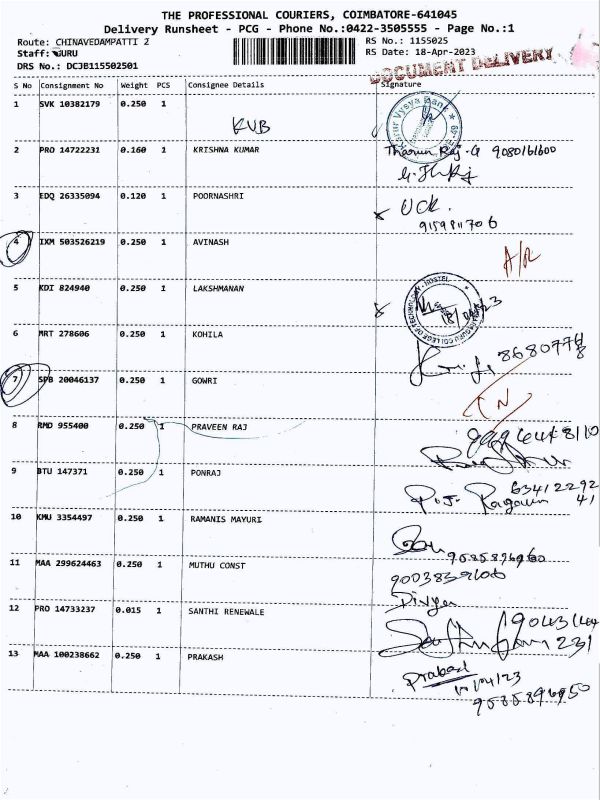 THE PROFESSIONAL COURIERS, COIMBATORE-641045
Delivery Runsheet - PCG - Phone No.:0422-3505555 - Page No.:1
Route: CHINAVEDAMPATTI 2 RS No.: 1155025
Staff: GURU RS Date: 18-Apr-2023
DRS No.: DCJB115502501 DOCUMENT DELIVERY
S No Consignment No Weight PCS Consignee Details Signature
1 SVK 10382179 0.250 1
KVB
Karur Vysya Bank
2 PRO 14722231 0.160 1 KRISHNA KUMAR Tharun Raj. G 9080161600
3 EDQ 26335094 0.120 1 POORNASHRI
9159811706
4 IXM 503526219 0.250 1 AVINASH
A/R
5 KDI 824940 0.250 1 LAKSHMANAN
COLLEGE OF TECHNOLOGY - HOSTEL
6 MRT 278606 0.250 1 KOHILA
7 SPB 20046137 0.250 1 GOWRI
8 RMD 955400 0.250 1 PRAVEEN RAJ
9 BTU 147371 0.250 1 PONRAJ
63412292
41
10 KMU 3354497 0.250 1 RAMANIS MAYURI
11 MAA 299624463 0.250 1 MUTHU CONST
Divya
12 PRO 14733237 0.015 1 SANTHI RENEWALE
231
13 MAA 100238662 0.250 1 PRAKASH